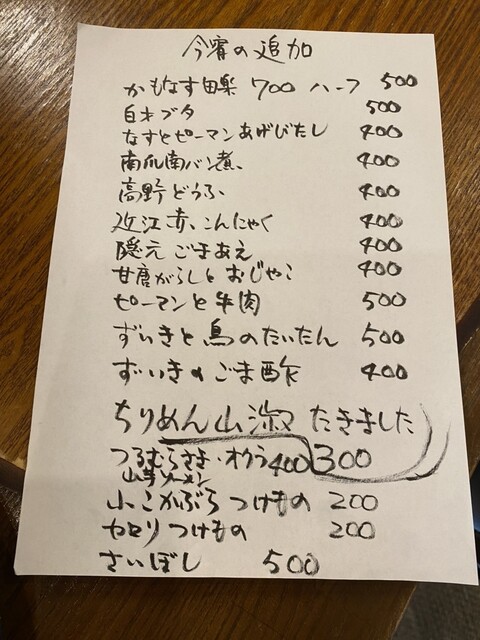 今宵の追加
かもなす田楽 700 ハーフ 500
白才ブタ 500
なすとピーマンあげびたし 400
南瓜南バン煮 400
高野どうふ 400
近江赤こんにゃく 400
隠元ごまあえ 400
甘唐がらしとおじゃこ 400
ピーマンと牛肉 500
ずいきと鳥のたいたん 500
ずいきのごま酢 400
ちりめん山淑 たきました 300
つるむらさき・オクラ 400
山芋ソーメン
小こかぶらつけもの 200
セロリつけもの 200
さいぼし 500